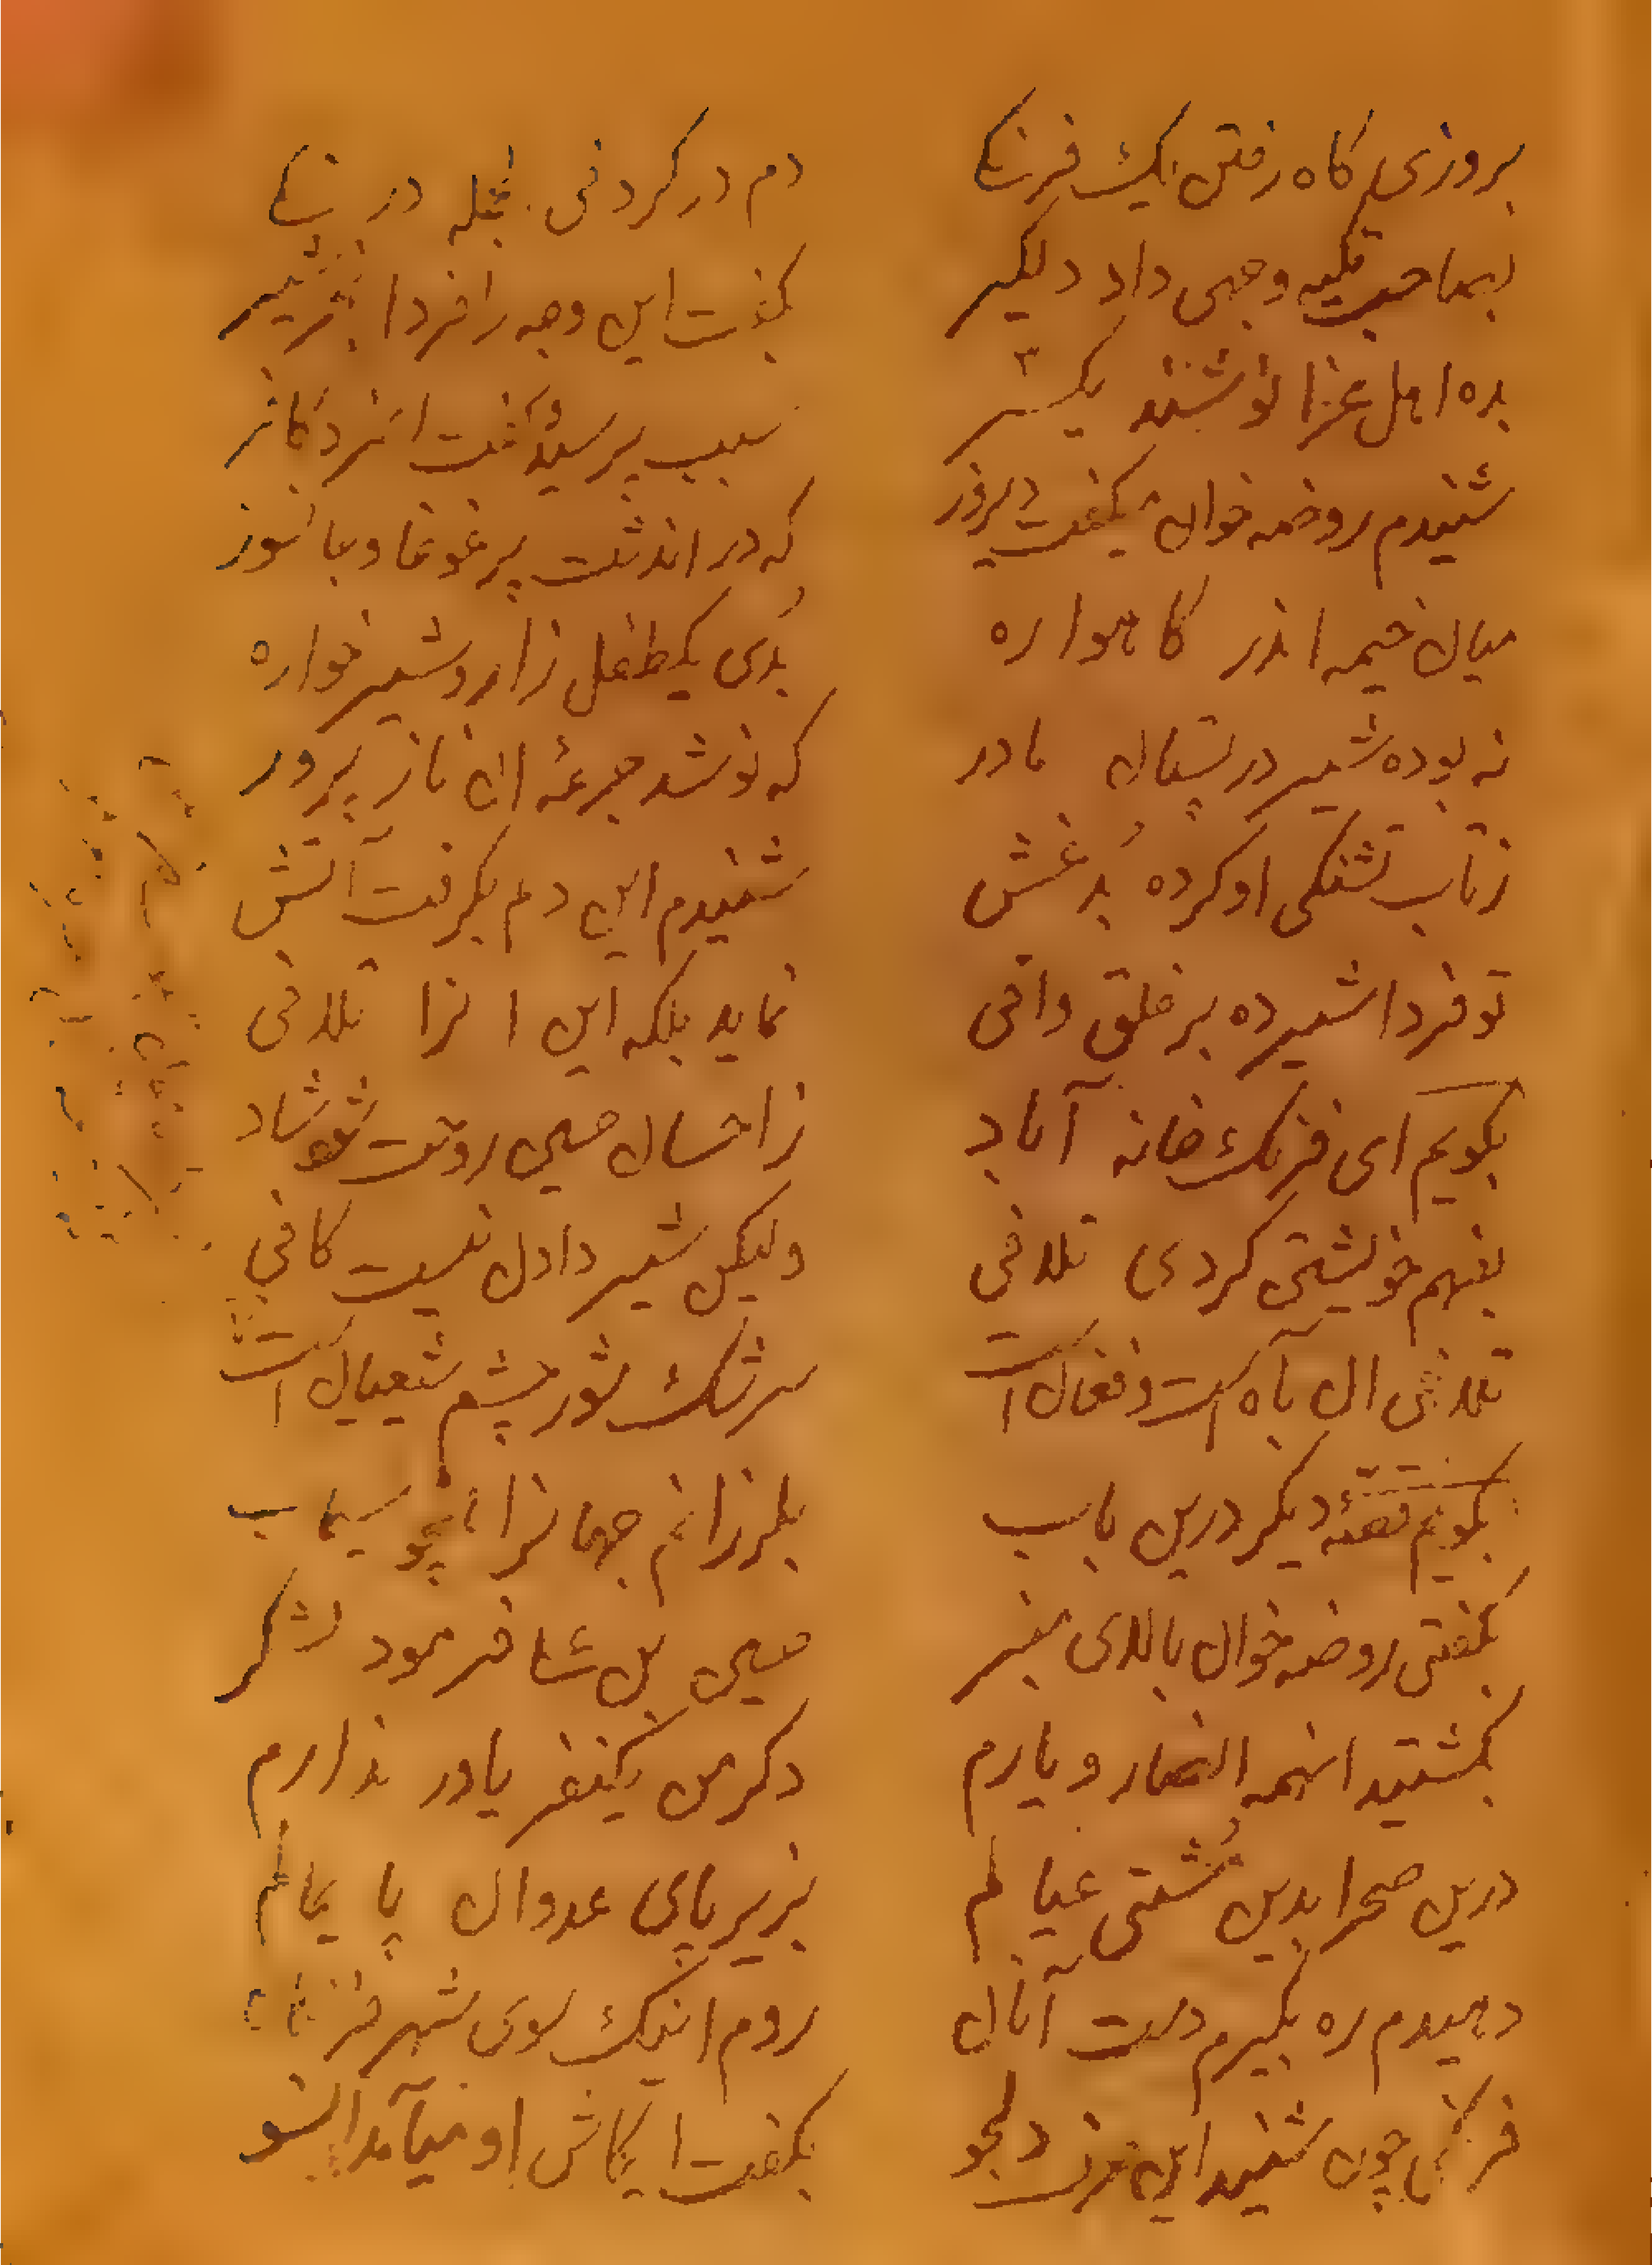 بروزی گاه رفتن یک فرنگی دم در کردنی در
بصاحب تکیه وجهی داد دلگیر بگفت این وجه را فردا شیر
بده اهل عزا نوشند یکسر سبب پرسید گفت انمرد کافر
شنیدم روضه خوان میگفت دیروز که در اندشت پر غوغا و جانسوز
میان خیمه اندر گاهواره بدی یکطفل زار و شیرخواره
نه بوده شیر در پستان مادر که نوشد جرعهٔ ان ناز پرور
زتاب تشنگی او کرده بد غش شنیدم این دلم بگرفت آتش
تو فردا شیر ده بر خلق وافی نماید بلکه این انرا تلافی
بگویم ای فرنگ خانه آباد ز احسان حسین روحت شود شاد
بفهم خویشتن کردی تلافی ولیکن شیر دادن نیست کافی
تلافی ان بآه است و فغان است سرشک شور چشم شیعیان است
بگویم قصهٔ دیگر درین باب بلرزانم جهانرا همچو سیماب
بگفتی روضه خوان بالای منبر حسین بن علی فرمود لشکر
بکشتید اینهمه انصار و یارم دگر من یکنفر یاور ندارم
درین صحرا بدین مشتی عیالم بزیر پای عدوان پا یمالم
دهیدم ره بگیرم دست آنان روم اینک سوی شهر
فرنگی چون شنید این حرف دلجو بگفت ایکاش او میآمد انسو